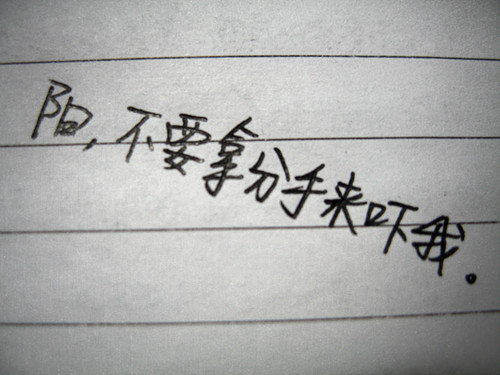 阳,不要拿分手来吓我。